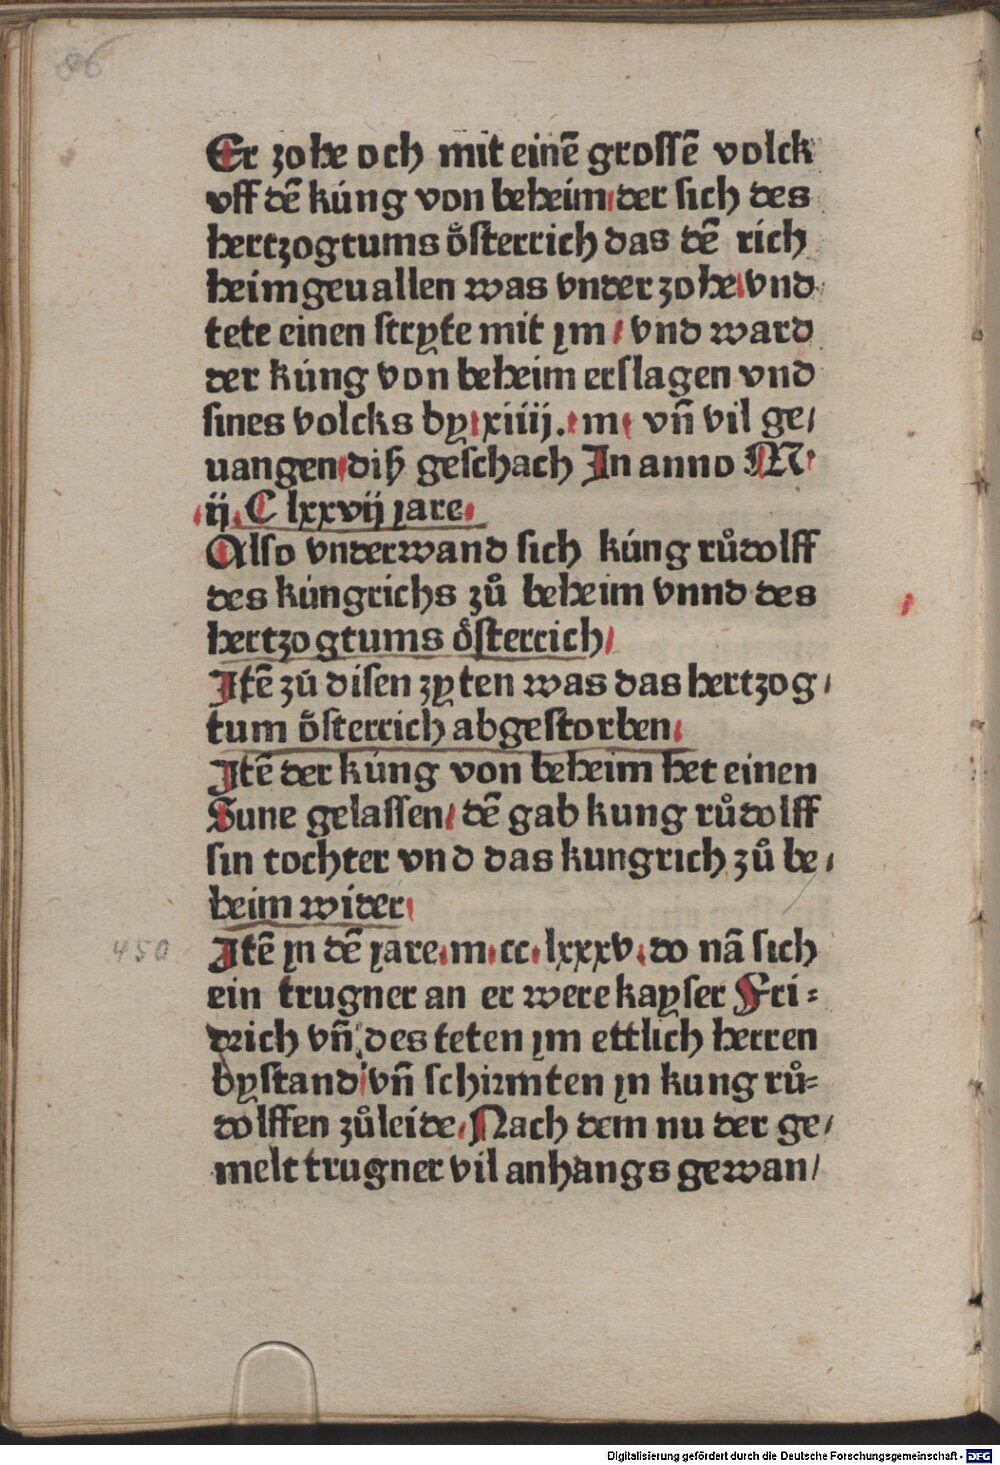 86
Er zohe och mit einē grossē volck
vff dē kúng von beheim / der sich des
hertzogtums o̊sterrich das dē rich
heimgeuallen was vnder zohe / vnd
tete einen stryte mit ym / vnd ward
der kúng von beheim erslagen vnd
sines volcks by / xiiij. / m / vn̄ vil ge/
uangen / diß geschach In anno M /
/ ij / C lxxvij iare /
Also vnderwand sich kúng růdolff
des kúngrichs zů beheim vnnd des
hertzogtums o̊sterrich /
Itē zů disen zyten was das hertzog/
tum o̊sterrich abgestorben /
Itē der kúng von beheim het einen
Sune gelassen / dē gab kung růdolff
sin tochter vnd das kungrich zů be/
heim wider /
450
Itē yn dē iare / m / cc / lxxxv / do nā sich
ein trugner an er were kayser Fri=
drich vn̄ des teten ym ettlich herren
bystand / vn̄ schirmten yn kung rů=
dolffen zůleide / Nach dem nu der ge/
melt trugner vil anhangs gewan/
Digitalisierung gefördert durch die Deutsche Forschungsgemeinschaft - DFG